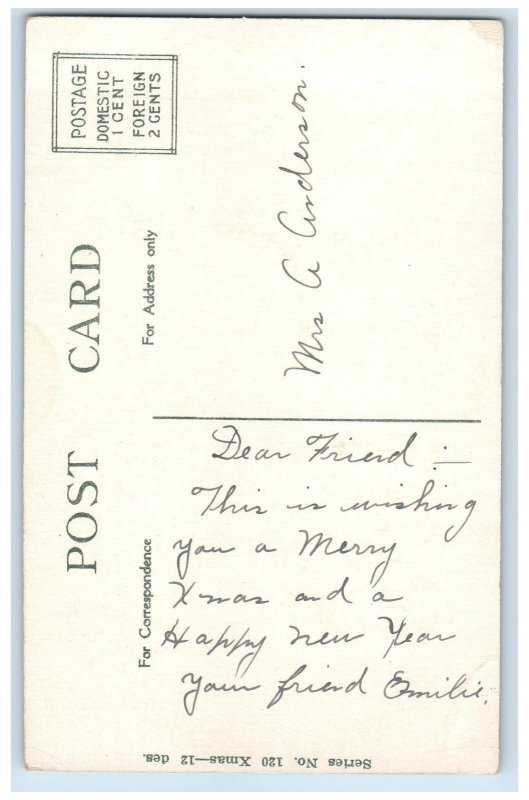 POST CARD
POSTAGE
DOMESTIC
1 CENT
FOREIGN
2 CENTS
For Address only
Mrs A Anderson.
For Correspondence
Dear Friend :—
This is wishing
you a Merry
Xmas and a
Happy New Year
Your friend Emilie.
Series No. 120 Xmas—12 des.